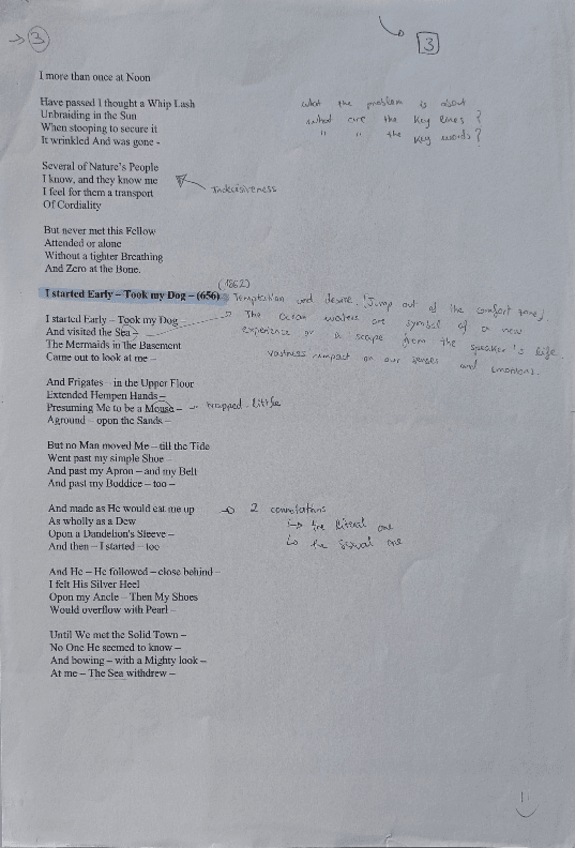 → 3
3
I more than once at Noon
Have passed I thought a Whip Lash
Unbraiding in the Sun
When stooping to secure it
It wrinkled And was gone -
what the problem is about
what are the key lines ?
" " the key words ?
Several of Nature's People
I know, and they know me
I feel for them a transport
Of Cordiality
Indecisiveness
But never met this Fellow
Attended or alone
Without a tighter Breathing
And Zero at the Bone.
(1862)
I started Early – Took my Dog – (656)
Temptation and desire. (Jump out of the comfort zone)
I started Early – Took my Dog
And visited the Sea –
The Mermaids in the Basement
Came out to look at me –
The Ocean waters are symbol of a new
experience or a scape from the speaker's life.
vastness impact on our senses and emotions.
And Frigates – in the Upper Flour
Extended Hempen Hands –
Presuming Me to be a Mouse –
Aground – opon the Sands –
trapped little
But no Man moved Me – till the Tide
Went past my simple Shoe –
And past my Apron – and my Belt
And past my Boddice – too –
And made as He would eat me up
As wholly as a Dew
Opon a Dandelion's Sleeve –
And then – I started – too
2 connotations
the literal one
the sexual one
And He – He followed – close behind –
I felt His Silver Heel
Opon my Ancle – Then My Shoes
Would overflow with Pearl –
Until We met the Solid Town –
No One He seemed to know –
And bowing – with a Mighty look –
At me – The Sea withdrew –